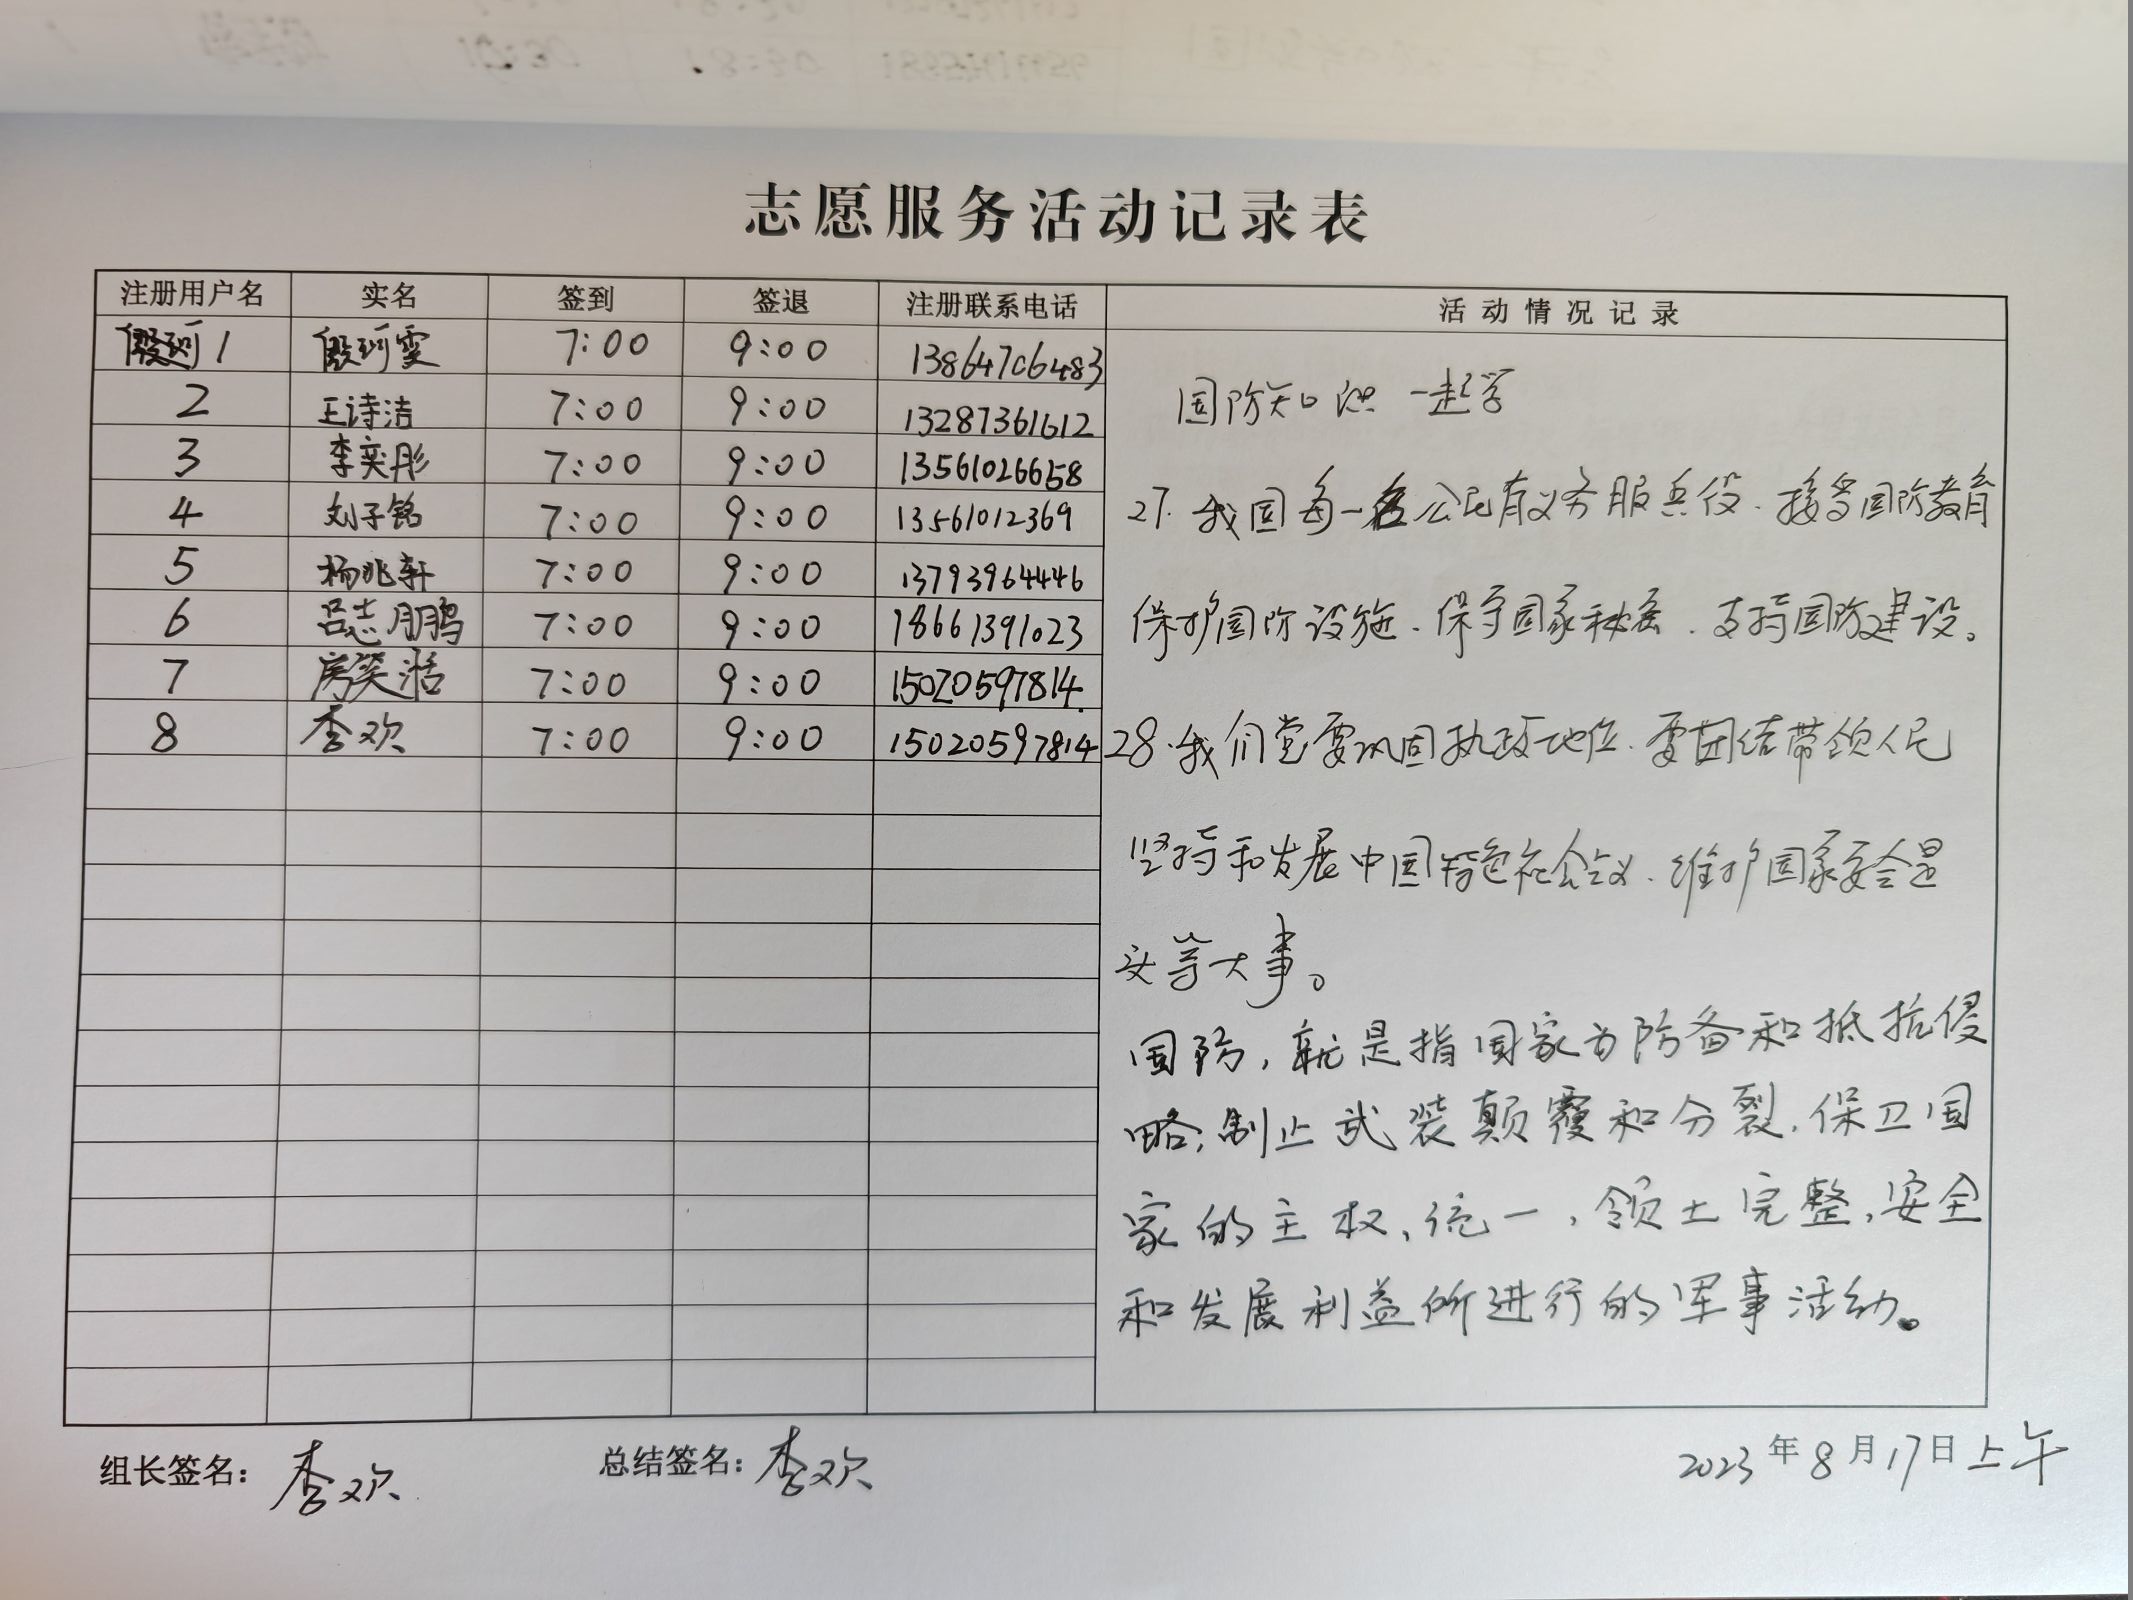 志愿服务活动记录表
注册用户名 实名 签到 签退 注册联系电话 活动情况记录
1 殷珂雯 7:00 9:00 13864706483
2 王诗洁 7:00 9:00 13287361612
3 李奕彤 7:00 9:00 13561026658
4 刘子铭 7:00 9:00 13561012369
5 杨兆轩 7:00 9:00 13793964446
6 吕志鹏 7:00 9:00 18661391023
7 房奕浩 7:00 9:00 15020597814
8 李欢 7:00 9:00 15020597814
国防知识一起学
27.我国每一名公民有义务服兵役、接受国防教育
保护国防设施、保守国家秘密、支持国防建设。
28.我们党要巩固执政地位、要团结带领人民
坚持和发展中国特色社会主义、维护国家安全是
头等大事。
国防,就是指国家为防备和抵抗侵
略,制止武装颠覆和分裂,保卫国
家的主权、统一,领土完整,安全
和发展利益所进行的军事活动。
组长签名：李欢 总结签名：李欢 2023年8月17日上午